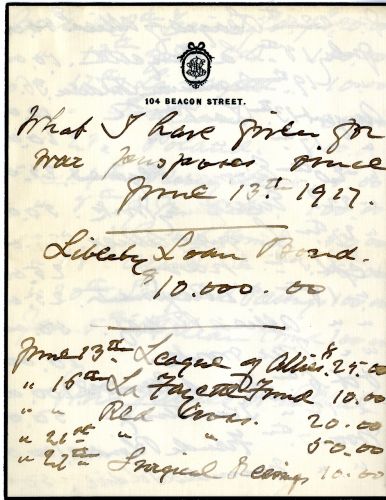 104 BEACON STREET.
What I have given for
war purposes since
June 13th 1917.
Liberty Loan Bond.
$10.000.00
June 13th League of Allies. $25.00
" 16th La Fayette Fund 10.00
" " Red Cross. 20.00
" 21st " " 50.00
" 27th " Surgical 10.00